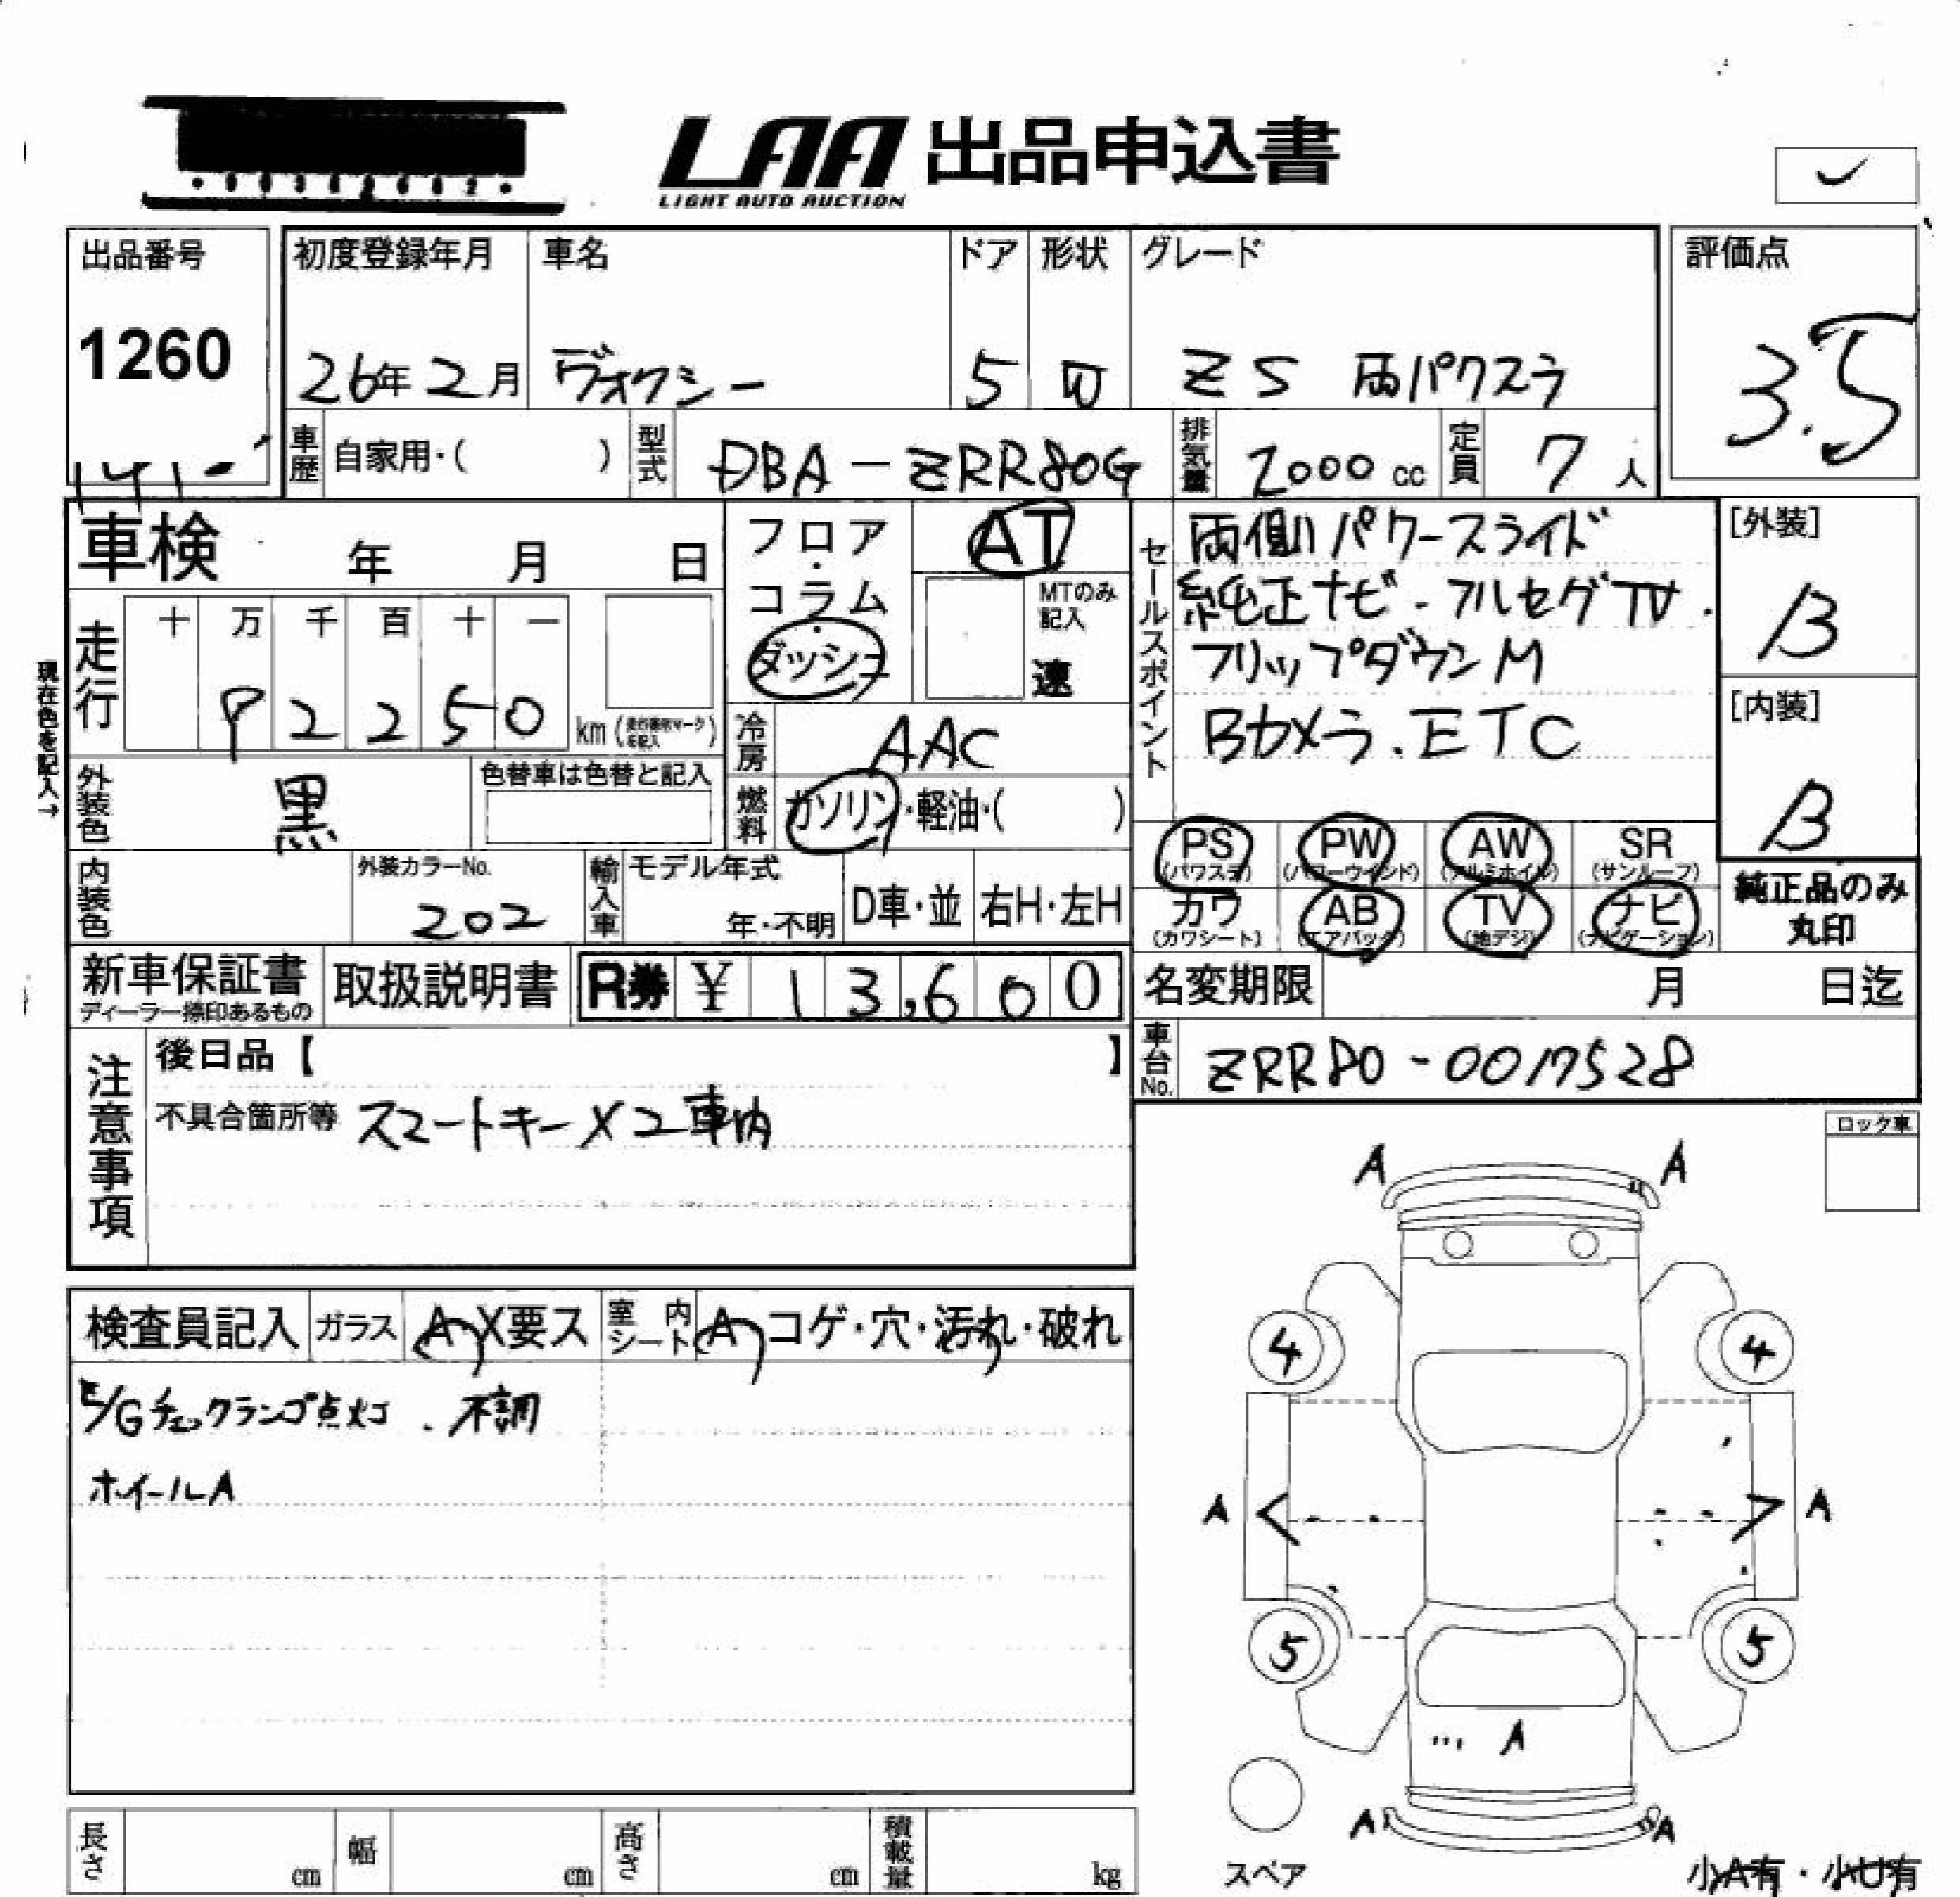 LAA 出品申込書
LIGHT AUTO AUCTION
出品番号
1260
初度登録年月
26年2月
車名
ヴォクシー
ドア
5
形状
グレード
ZS 両パワスラ
評価点
3.5
車歴
自家用・( )
型式
DBA-ZRR80G
排気量
2000 cc
定員
7人
車検 年 月 日
フロア・コラム・ダッシュ
AT
MTのみ記入
速
セールスポイント
両側パワースライド
純正ナビ・フルセグTV.
フリップダウンM
Bカメラ.ETC
[外装]
B
[内装]
B
現在色を記入→
走行
十 万 千 百 十 一
92250
km
冷房
AAC
外装色
黒
色替車は色替と記入
燃料
ガソリン・軽油・( )
PS (パワステ)
PW (パワーウインド)
AW (アルミホイル)
SR (サンルーフ)
カワ (カワシート)
AB (エアバック)
TV (地デジ)
ナビ (ナビゲーション)
純正品のみ
丸印
内装色
外装カラーNo.
202
輸入車
モデル年式
年・不明
D車・並
右H・左H
新車保証書
ディーラー捺印あるもの
取扱説明書
R券 ¥ 13,600
名変期限 月 日迄
車台No.
ZRR80-0017528
注意事項
後日品【 】
不具合箇所等 スマートキー×2車内
ロック車
検査員記入
ガラス
A・X要ス
室内シート
A・コゲ・穴・汚れ・破れ
E/Gチェックランプ点灯.不調
ホイールA
A A
4 4
A A
5 5
A
A A
スペア
小A有・小U有
長さ cm
幅 cm
高さ cm
積載量 kg